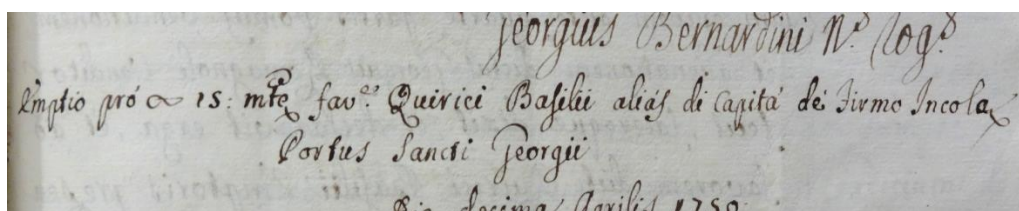 Georgius Bernardini N.s Rog.s
Emptio pró ∾ 15: mte fav.e Quirici Basilii aliás di Capitá dei Firmo Incola
Portus Sancti Georgii
Die decima Aprilis 1750